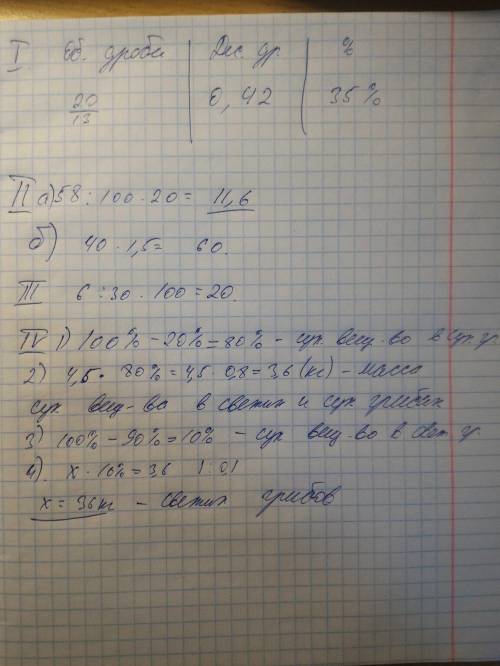 I Об. дроби Дес. др. %
20/13 0,42 35%
II а) 58 : 100 · 20 = 11,6
б) 40 · 1,5 = 60.
III 6 : 30 · 100 = 20.
IV 1) 100% - 20% = 80% - сух. вещ-во в сух. гр.
2) 4,5 · 80% = 4,5 · 0,8 = 3,6 (кг) - масса
сух. вещ-ва в свежих и сух. грибах
3) 100% - 90% = 10% - сух. вещ-во в свеж. гр.
4) х · 10% = 3,6 | : 0,1
х = 36 кг - свежих грибов